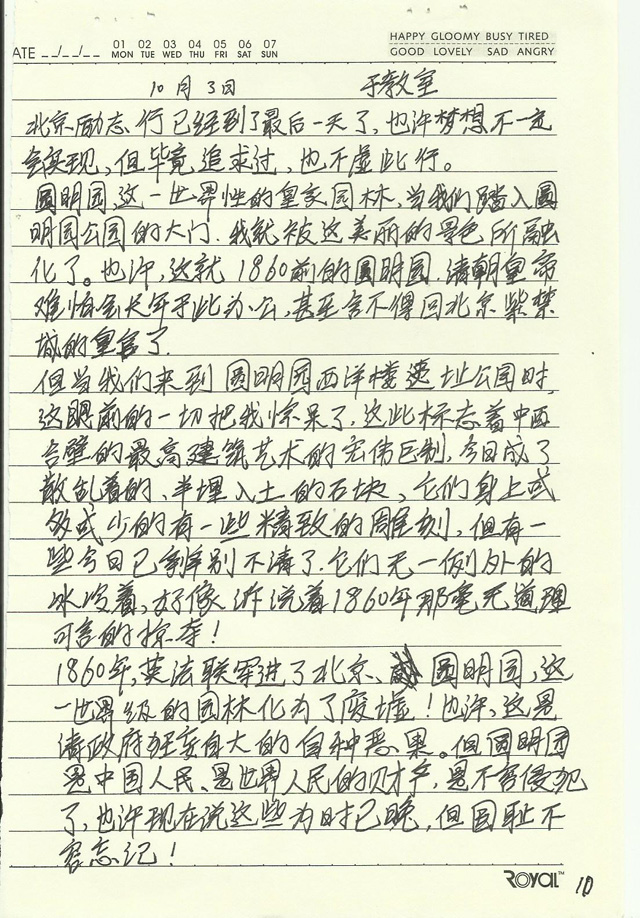 DATE __/__/__ 01 MON 02 TUE 03 WED 04 THU 05 FRI 06 SAT 07 SUN
HAPPY GLOOMY BUSY TIRED
GOOD LOVELY SAD ANGRY
10月3日 于教室
北京励志行已经到了最后一天了,也许梦想不一定
会实现,但毕竟追求过,也不虚此行。
圆明园,这一世界性的皇家园林,当我们踏入圆
明园公园的大门,我就被这美丽的景色所融
化了。也许,这就1860前的圆明园,清朝皇帝
难怪会长年于此办公,甚至舍不得回北京紫禁
城的皇宫了.
但当我们来到圆明园西洋楼遗址公园时,
这眼前的一切把我惊呆了,这些标志着中西
合壁的最高建筑艺术的宏伟巨制,今日成了
散乱着的、半埋入土的石块,它们身上或
多或少的有一些精致的雕刻,但有一
些今日已辨别不清了.它们无一例外的
冰冷着,好像诉说着1860年那毫无道理
可言的掠夺!
1860年,英法联军进了北京、圆明园,这
一世界级的园林化为了废墟!也许,这是
清政府狂妄自大的自种恶果。但圆明园
是中国人民、是世界人民的财产,是不容侵犯
了,也许现在说这些为时已晚,但国耻不
容忘记!
ROYAL™ 10